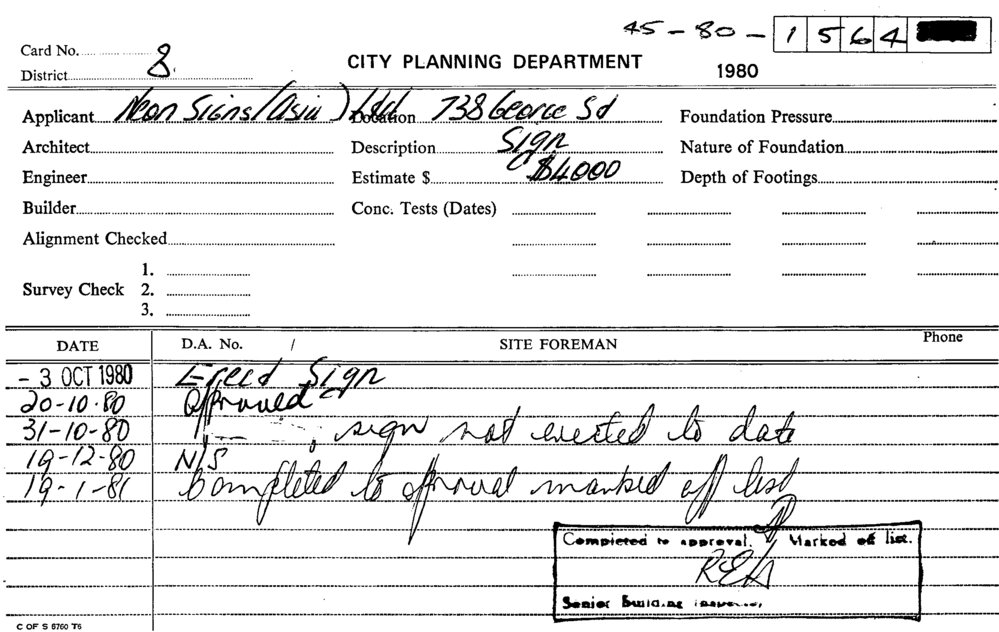 45-80-1564
Card No. 8
District
CITY PLANNING DEPARTMENT
1980
Applicant Neon Signs (Asia) Ltd Location 738 George St Foundation Pressure
Architect Description Sign Nature of Foundation
Engineer Estimate $ $4000 Depth of Footings
Builder Conc. Tests (Dates)
Alignment Checked
1.
Survey Check 2.
3.
DATE D.A. No. / SITE FOREMAN Phone
- 3 OCT 1980 Erect Sign
20-10-80 Approved
31-10-80 sign not erected to date
19-12-80 N/S
19-1-81 Completed to approval marked off list
Completed to approval. Marked off list.
Senior Building Inspector
C OF S 6760 T6